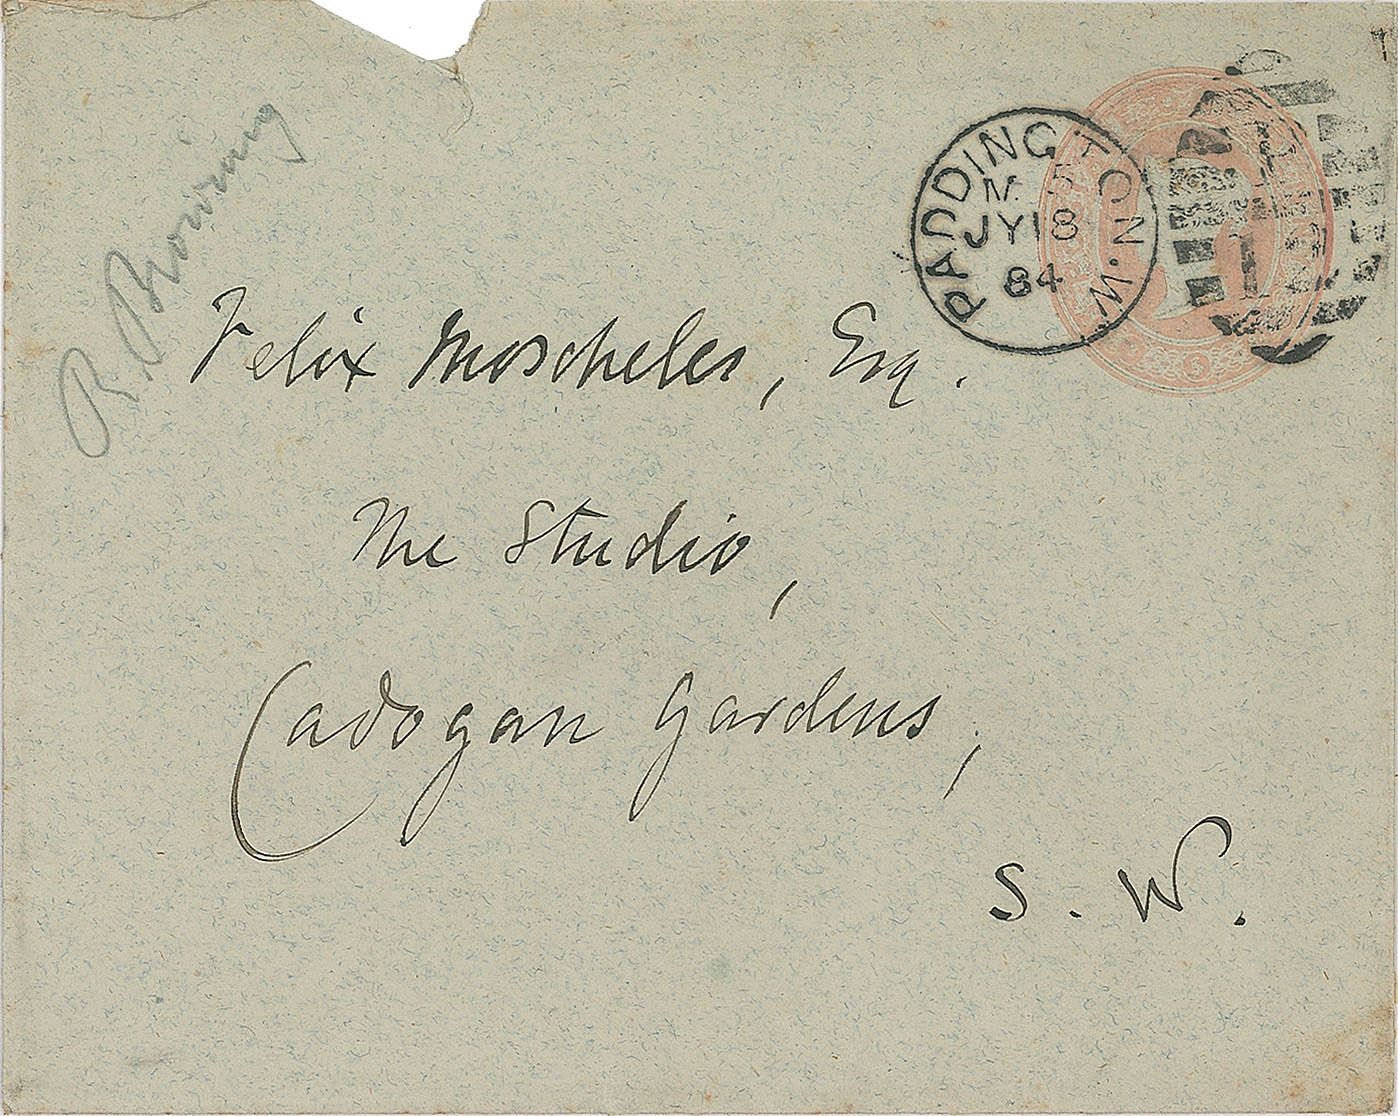 R. Browning
PADDINGTON. W.
M 5
JY 18
84
Felix Moscheles, Esq.
The Studio,
Cadogan Gardens,
S. W.